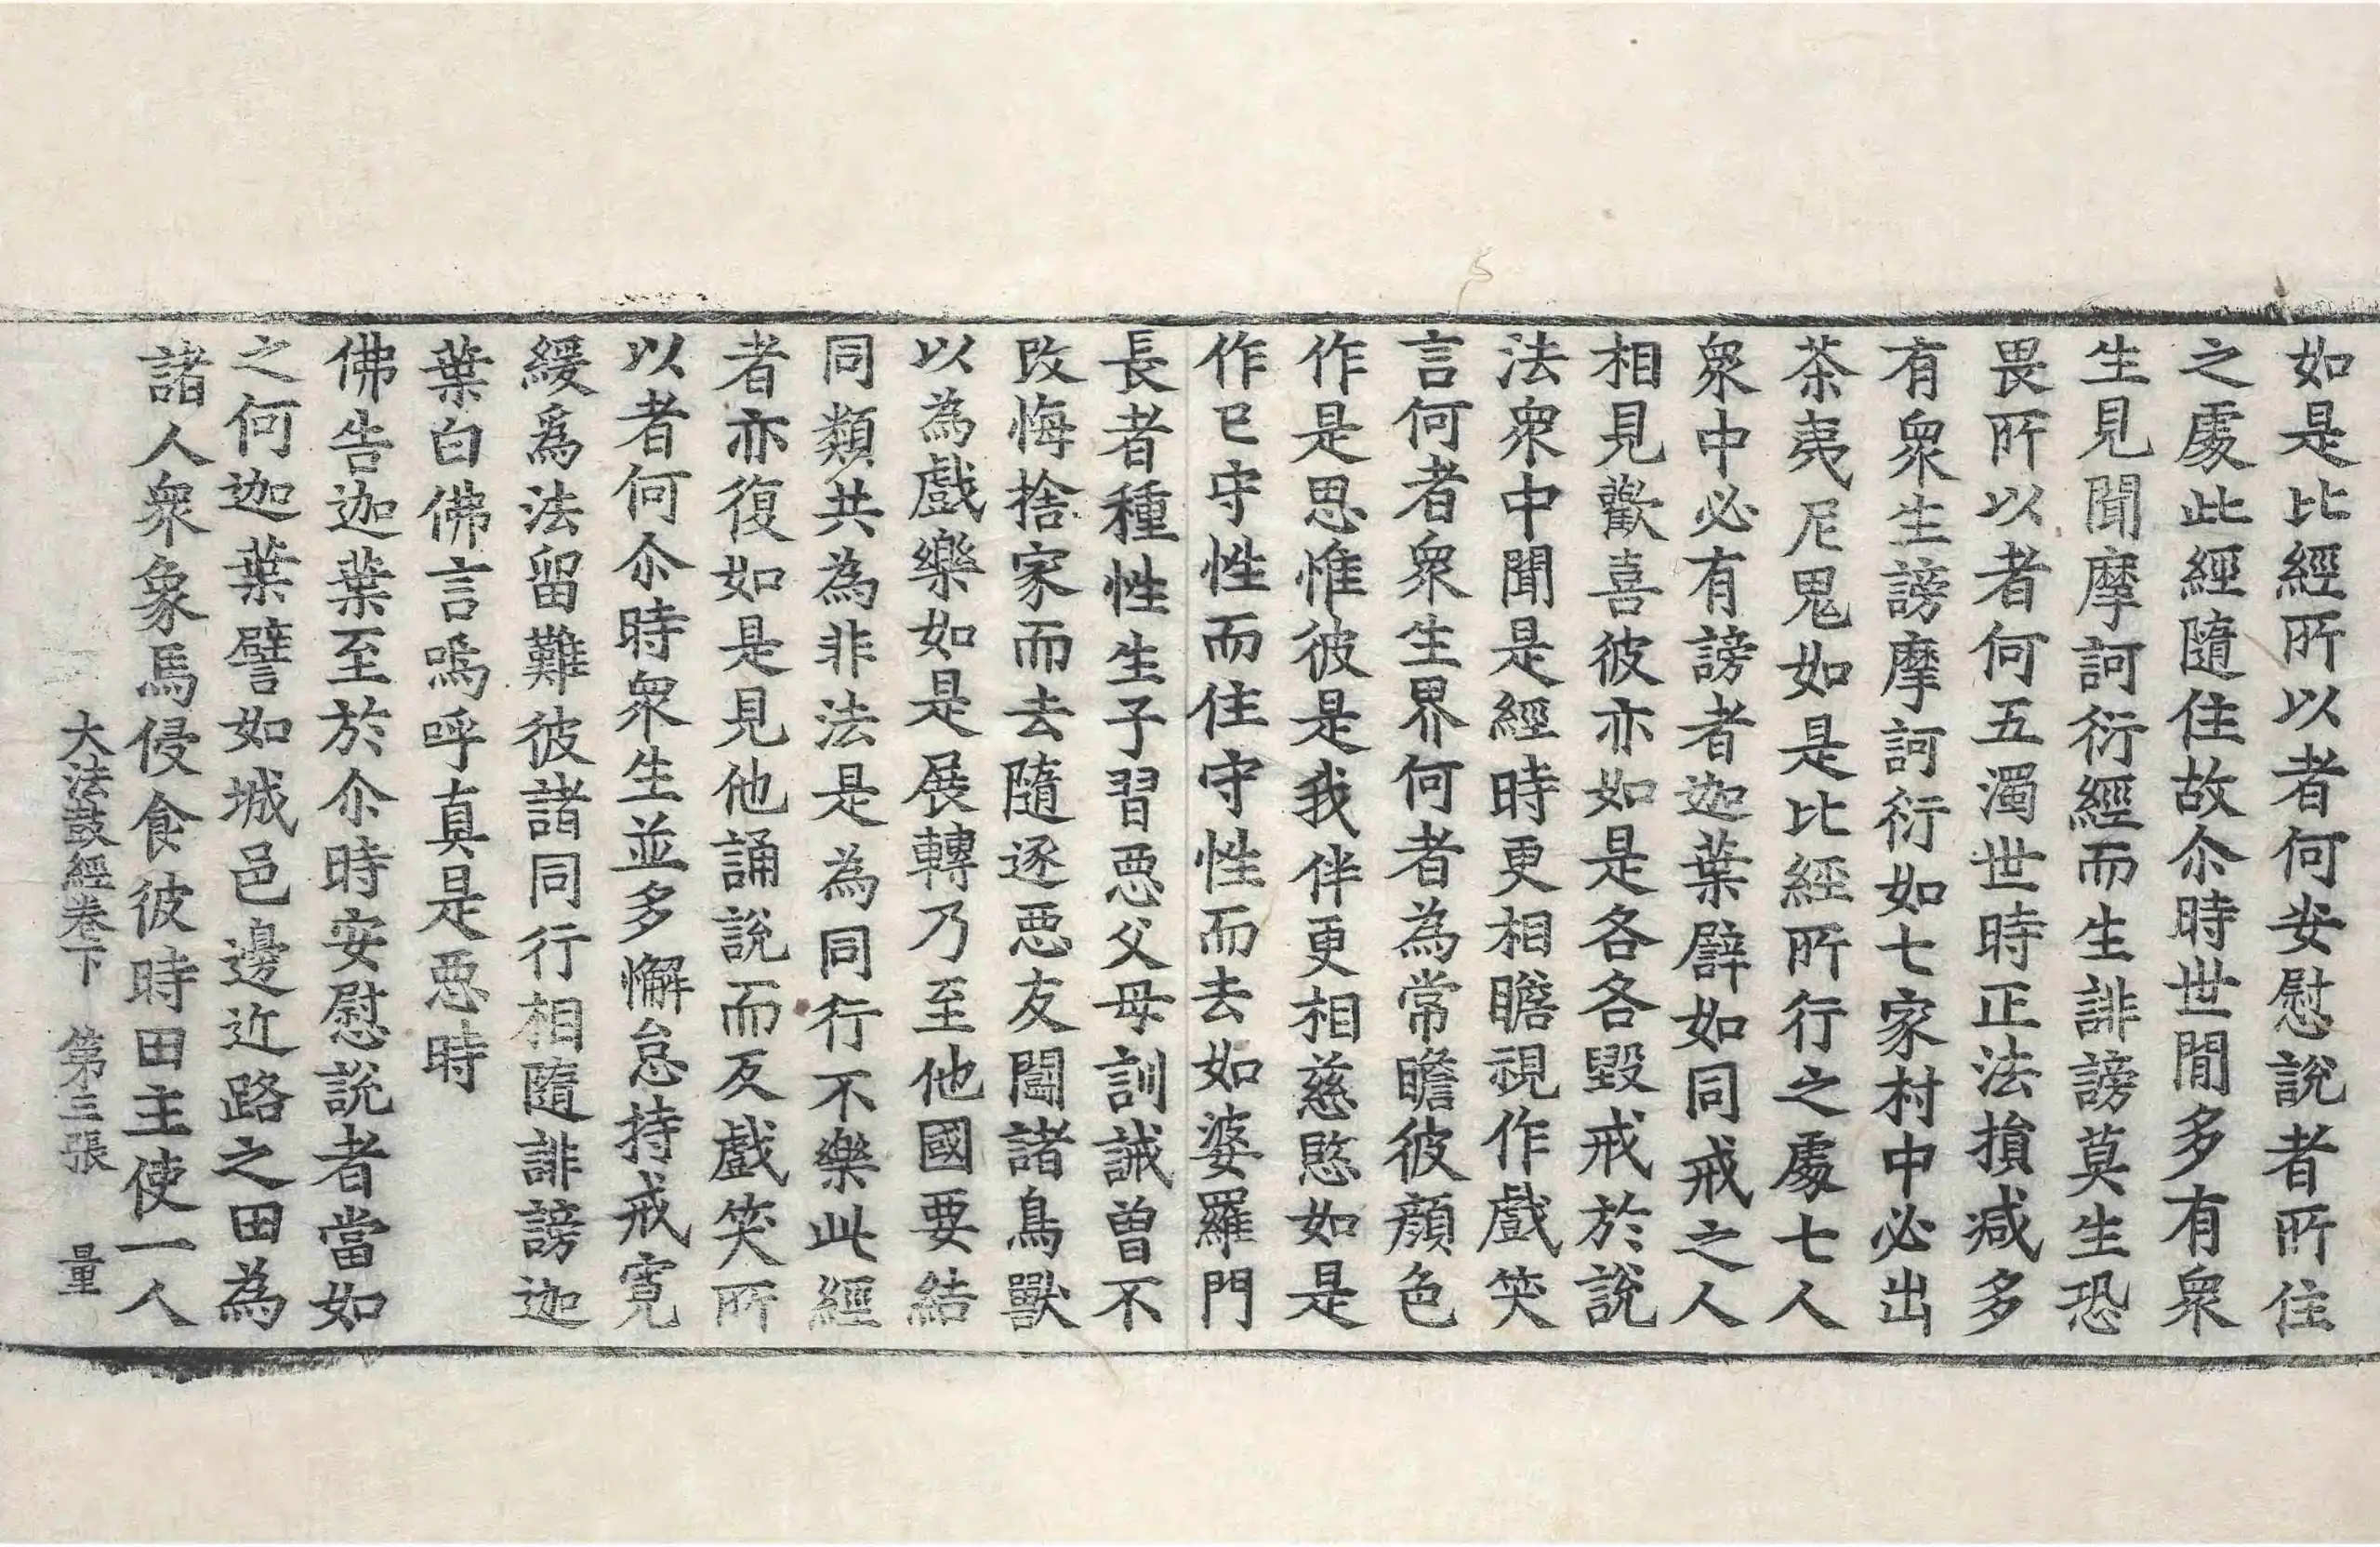 如是比經所以者何安慰說者所住
之處此經隨住故尒時世閒多有衆
生見聞摩訶衍經而生誹謗莫生恐
畏所以者何五濁世時正法損減多
有衆生謗摩訶衍如七家村中必出
茶夷尼鬼如是比經所行之處七人
衆中必有謗者迦葉辟如同戒之人
相見歡喜彼亦如是各各毀戒於說
法衆中聞是經時更相瞻視作戲笑
言何者衆生界何者為常瞻彼顔色
作是思惟彼是我伴更相慈愍如是
作已守性而住守性而去如婆羅門
長者種性生子習惡父母訓誡曾不
改悔捨家而去隨逐惡友鬪諸鳥獸
以為戲樂如是展轉乃至他國要結
同類共為非法是為同行不樂此經
者亦復如是見他誦說而反戲笑所
以者何尒時衆生並多懈怠持戒寬
緩爲法留難彼諸同行相隨誹謗迦
葉白佛言嗚呼真是惡時
佛告迦葉至於尒時安慰說者當如
之何迦葉譬如城邑邊近路之田為
諸人衆象馬侵食彼時田主使一人
大法鼓經卷下 第三張 量